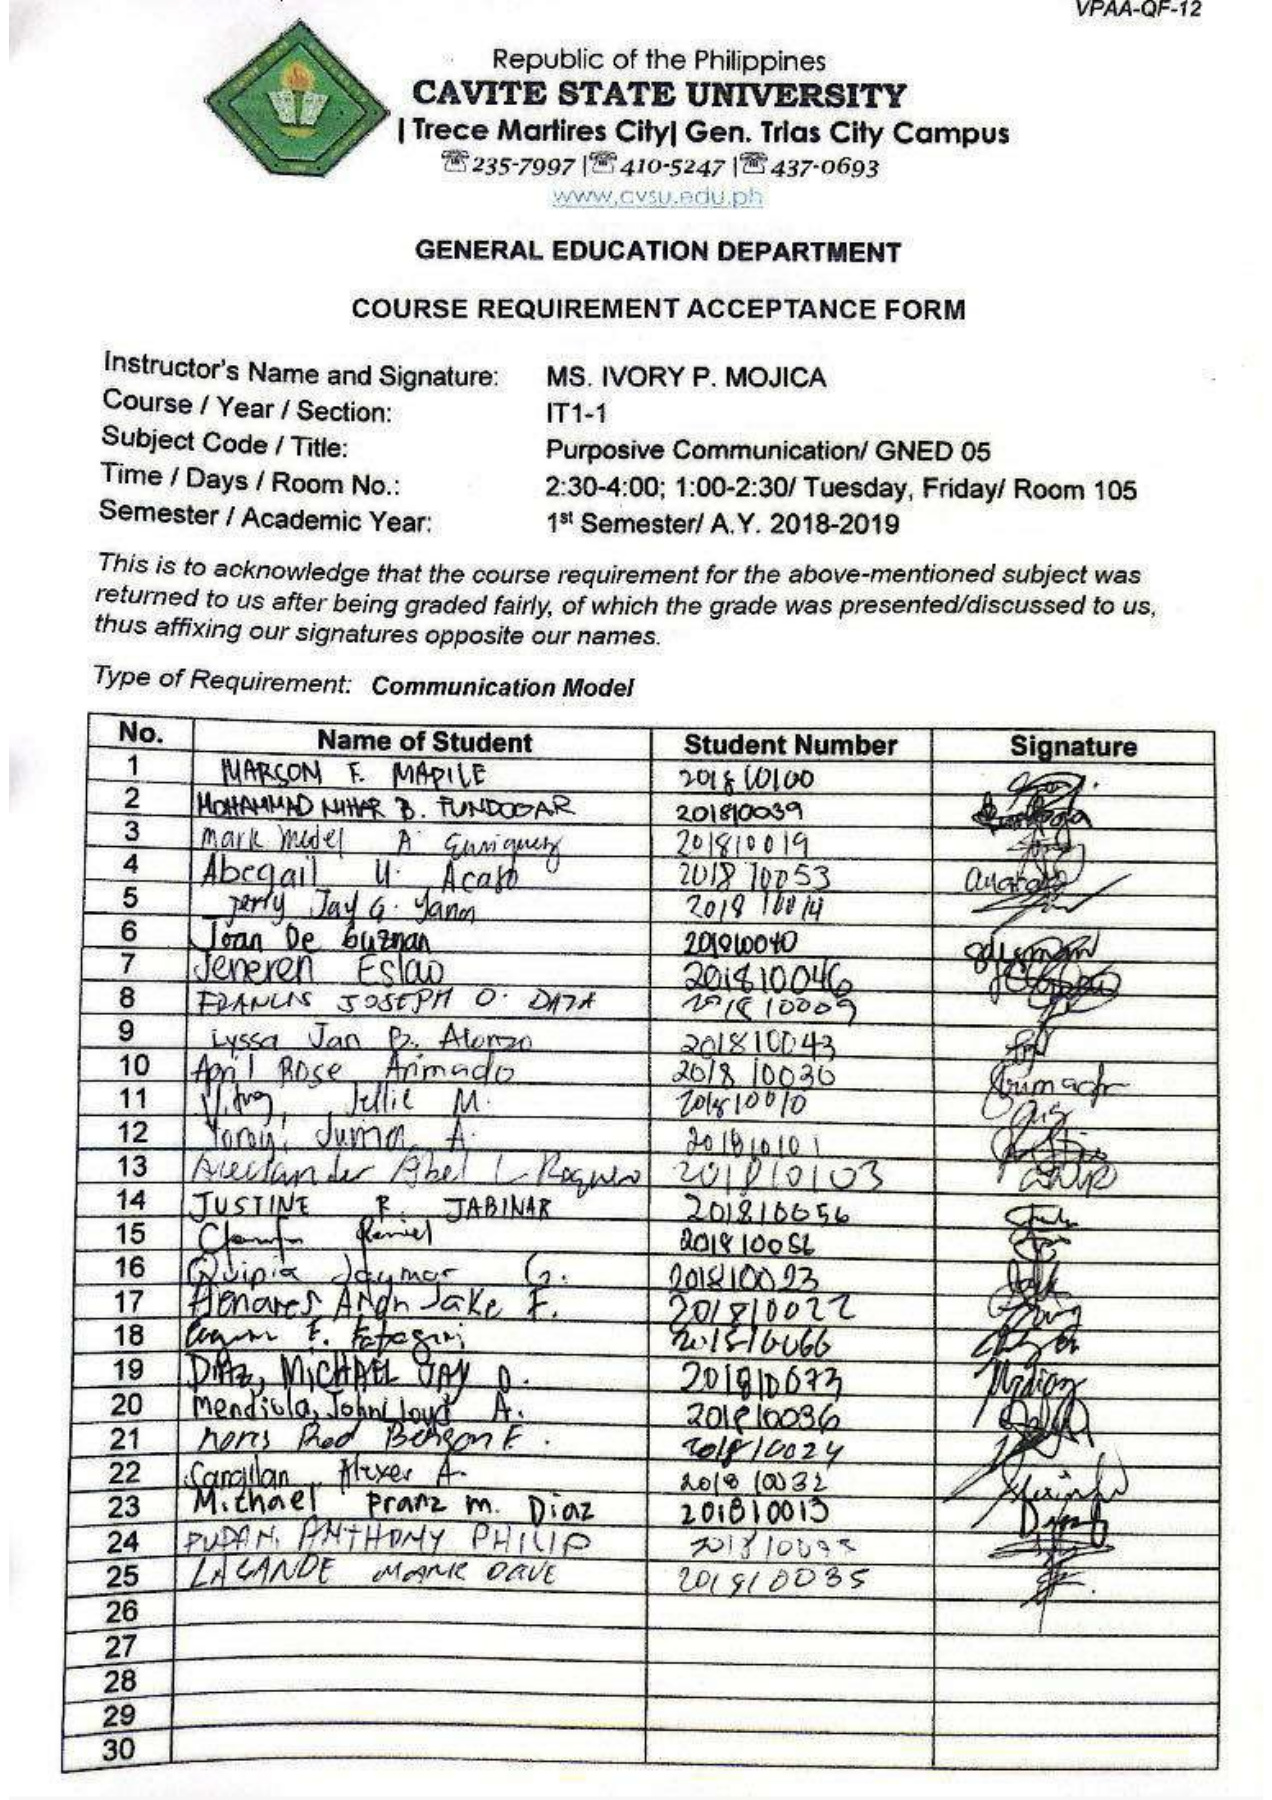 VPAA-QF-12
Republic of the Philippines
CAVITE STATE UNIVERSITY
| Trece Martires City| Gen. Trias City Campus
☏235-7997 |☏410-5247 |☏437-0693
www.cvsu.edu.ph
GENERAL EDUCATION DEPARTMENT
COURSE REQUIREMENT ACCEPTANCE FORM
Instructor's Name and Signature: MS. IVORY P. MOJICA
Course / Year / Section: IT1-1
Subject Code / Title: Purposive Communication/ GNED 05
Time / Days / Room No.: 2:30-4:00; 1:00-2:30/ Tuesday, Friday/ Room 105
Semester / Academic Year: 1st Semester/ A.Y. 2018-2019
This is to acknowledge that the course requirement for the above-mentioned subject was
returned to us after being graded fairly, of which the grade was presented/discussed to us,
thus affixing our signatures opposite our names.
Type of Requirement: Communication Model
No. Name of Student Student Number Signature
1 MARSON F. MAPILE 201810100
2 MOHAMMAD NIHAR B. FUNDOGAR 201810039
3 Mark Medel A Enriquez 201810019
4 Abegail U. Acato 201810053
5 Jerry Jay G. Yanos 201810014
6 Joan De Guzman 201810040
7 Jeneren Eslao 201810046
8 FRANCIS JOSEPH O. DATA 201810009
9 Lyssa Jan B. Alonzo 201810043
10 April Rose Arimado 201810030
11 Jellie M. 201810010
12 Junna A. 201810101
13 Abel L 201810103
14 JUSTINE R. JABINAR 201810056
15 201810056
16 Quipia Jaymar G. 201810023
17 Henares Aron Jake F. 201810022
18 F. 201810066
19 DIAZ, MICHAEL JAY D. 201810073
20 Mendiola, John Lloyd A. 201810036
21 Rod Benson F. 201810024
22 Alexer A. 201810032
23 Michael Pranz M. Diaz 201810013
24 ANTHONY PHILIP
25 LACANDE MARK DAVE 201810035
26
27
28
29
30